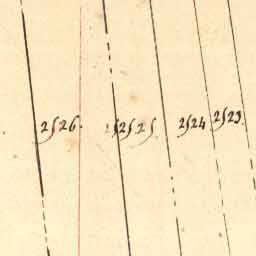 2526. 2525. 2524 2523.